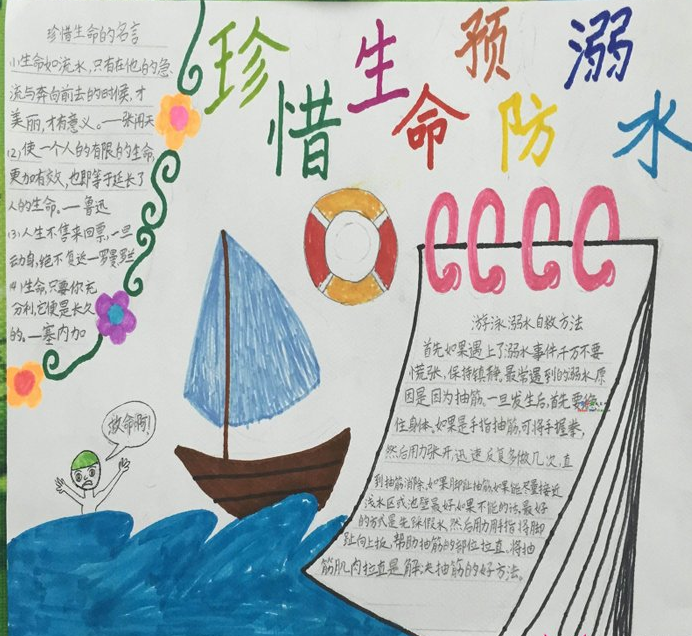 珍惜生命 预防溺水
珍惜生命的名言
(1)生命如流水,只有在他的急
流与奔向前去的时候,才
美丽,才有意义。——张闻天
(2)使一个人的有限的生命,
更加有效,也即等于延长了
人的生命。——鲁迅
(3)人生不售来回票,一旦
动身,绝不复返—罗曼罗兰
(4)生命,只要你充
分利,它便是长久
的。—塞内加
救命啊!
游泳溺水自救方法
首先如果遇上了溺水事件千万不要
慌张,保持镇静,最常遇到的溺水原
因是因为抽筋,一旦发生后,首先要
住身体,如果是手指抽筋,可将手握拳,
然后用力张开,迅速反复多做几次,直
到抽筋消除,如果脚趾抽筋,如果能尽量接近
浅水区或池壁最好,如果不能的话,最好
的方式是先踩假水,然后用力用手指将脚
趾向上扳,帮助抽筋的部位拉直,将抽
筋肌肉拉直是解决抽筋的好方法。